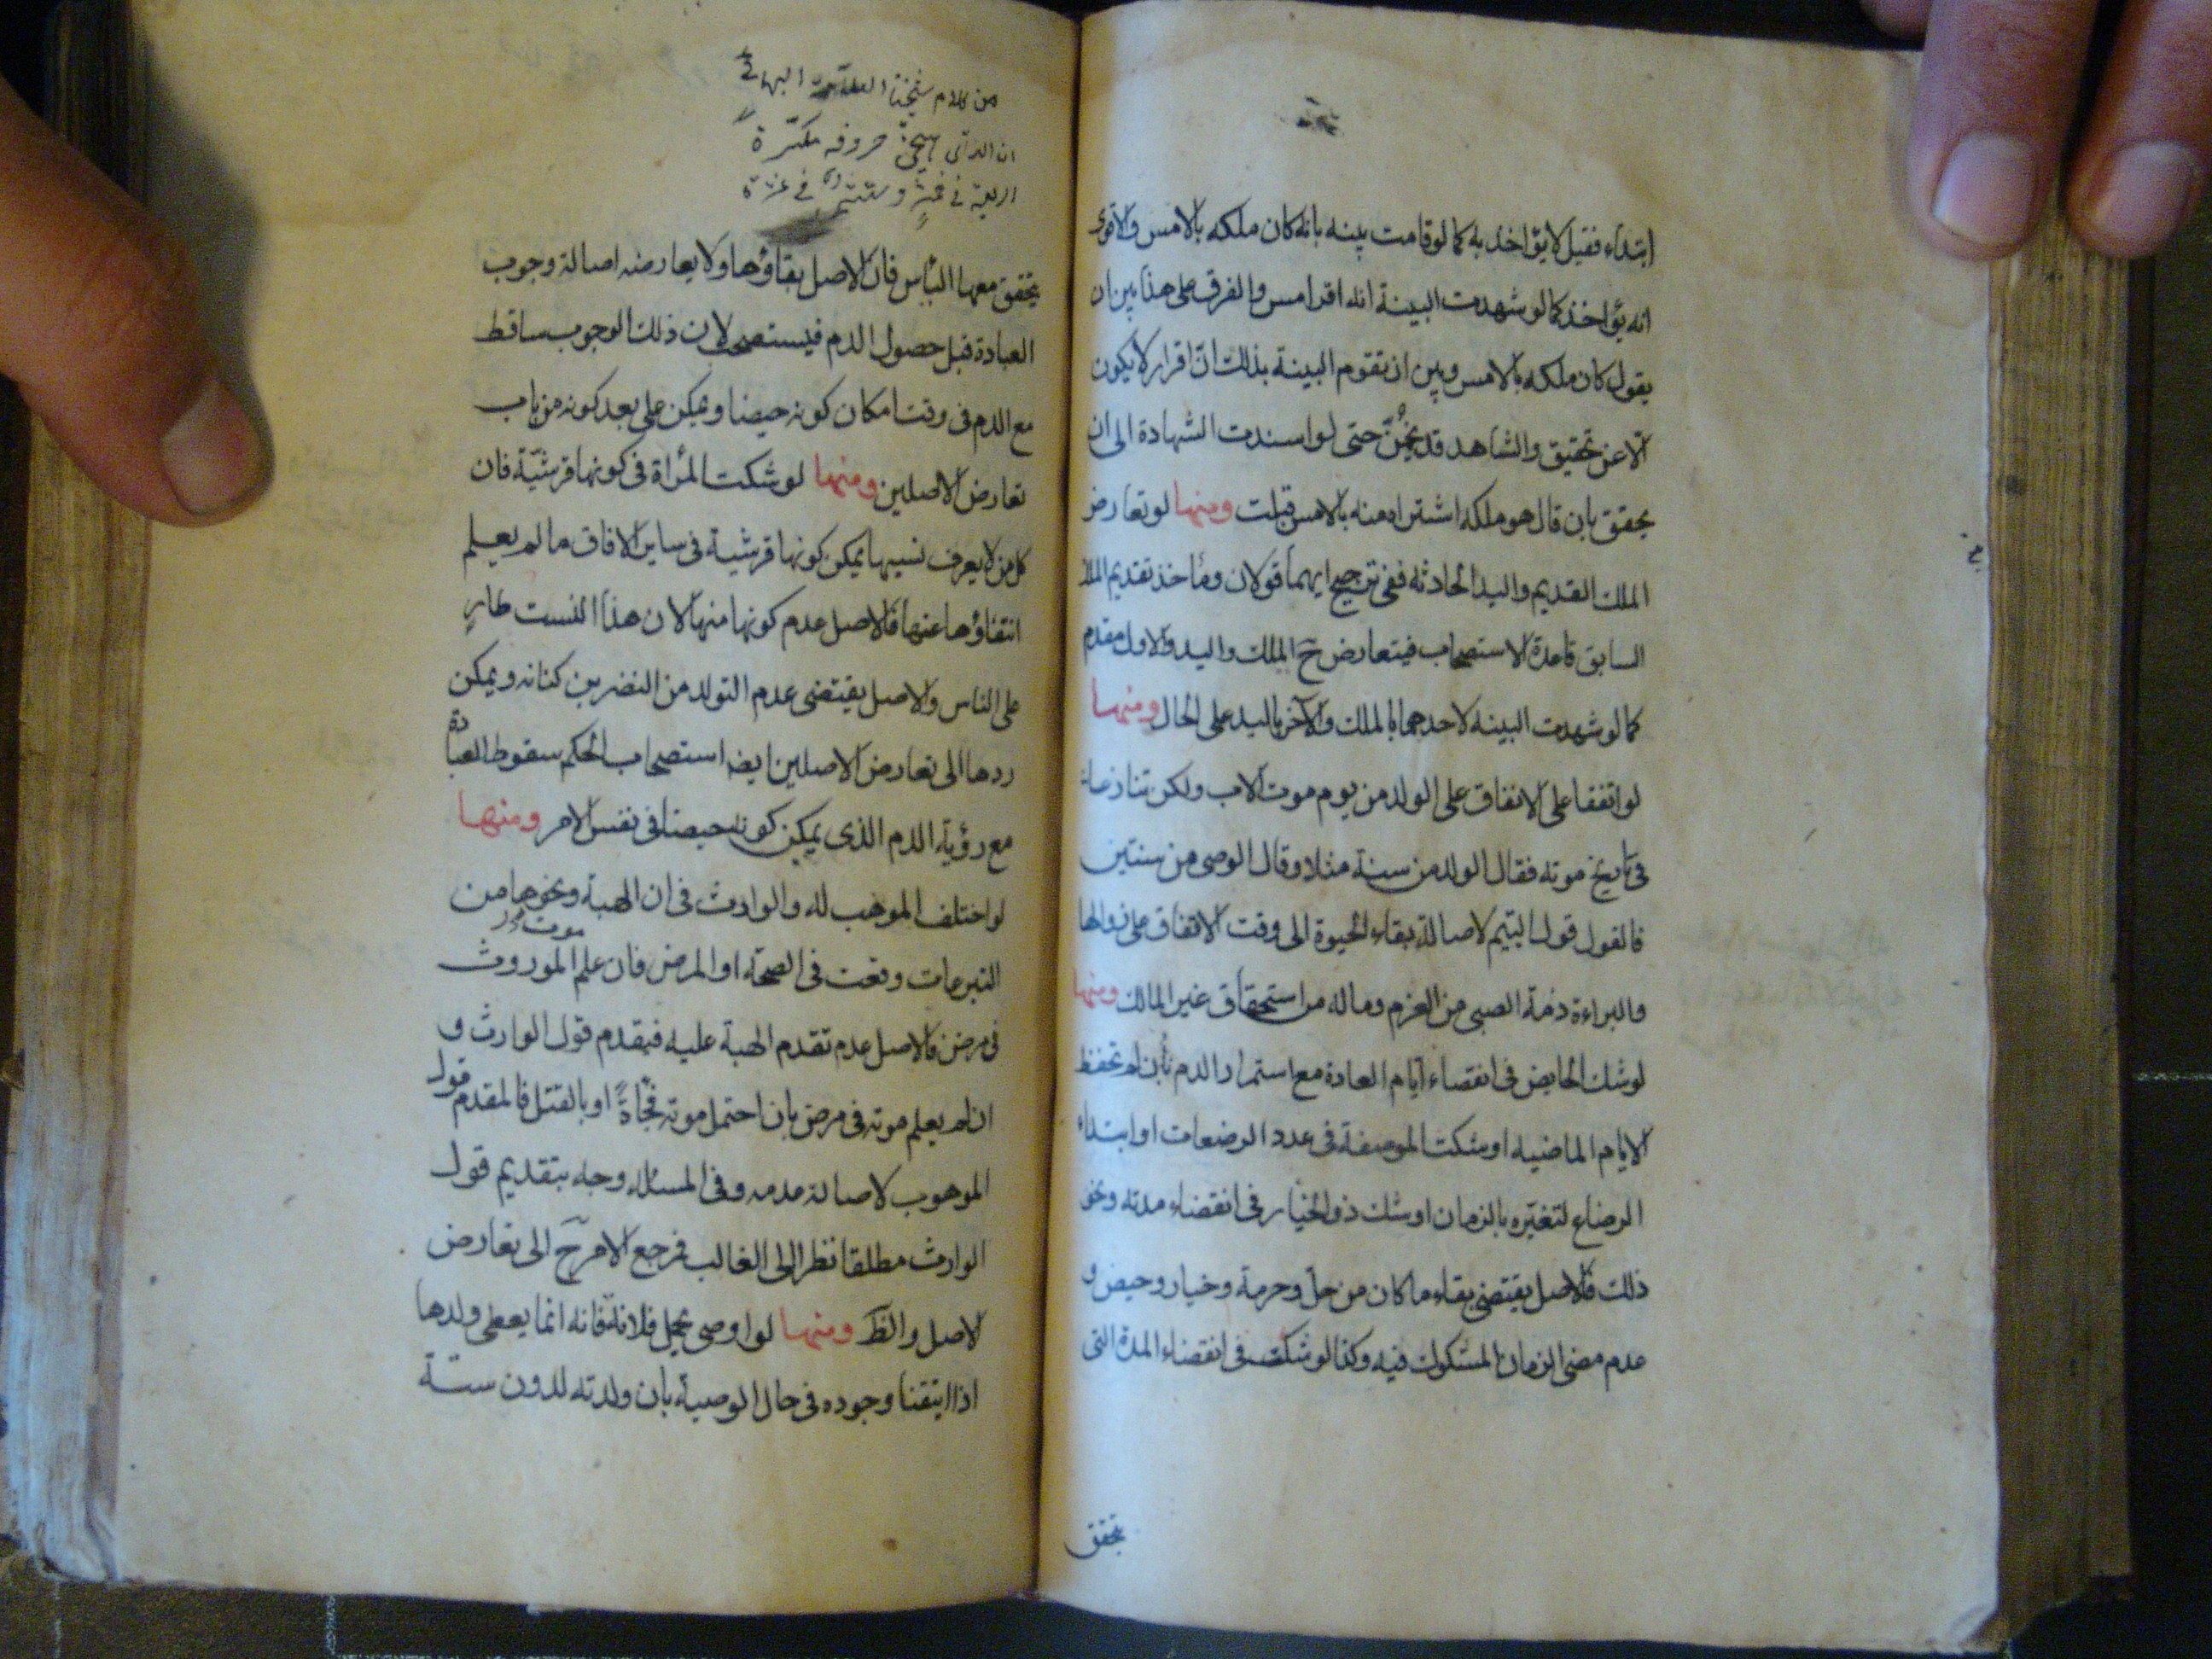 ابتداء فقيل لا يؤاخذ به كما لو قامت بينه بانه كان ملكه بالامس والاقوى
انه يؤاخذ كما لو شهدت البينة انه اقر امس والفرق على هذا بين ان
يقول كان ملكه بالامس وبين ان تقوم البينة بذلك انّ اقرار لا يكون
الّا عن تحقيق والشاهد قد يخمّن حتى لو اسندت الشهادة الى ان
يحقق بان قال هو ملكه اشتراه منه بالامس قبلت ومنها لو تعارض
الملك القديم واليد الحادثه ففي ترجيح ايهما قولان ومأخذ تقديم الملك
السابق قاعدة الاستصحاب فيتعارض ح الملك واليد والاول مقدم
كما لو شهدت البينه لاحدهما بالملك والآخر باليد على الحال ومنها
لو اتفقا على الانفاق على الولد من يوم موت الاب ولكن تنازعا
فى تاريخ موته فقال الولد من سنة مثلا وقال الوصى من سنتين
فالقول قول اليتيم لاصالة بقاء الحيوة الى وقت الاتفاق على زوالها
والبراءة ذمة الصبى من الغرم وماله من استحقاق غير المالك ومنها
لو شك الحايض فى انقضاء ايام العادة مع استمرار الدم بان لم تحفظ
الايام الماضيه او شكت الموضعة فى عدد الرضعات او ابتداء
الرضاع لتغيّره بالزمان او شك ذو الخيار فى انقضاء مدته ونحو
ذلك فالاصل يقتضى بقاء ما كان من حل وحرمة وخيار وحيض و
عدم مضى الزمان المشكوك فيه وكذا لو شكت فى انقضاء المدة التى
تحقق
من كلام شيخنا العلامة البهائى
ان الذى حروفه
فى وستة فى
تحقق معها الياس فان الاصل بقاؤها ولا يعارضه اصالة وجوب
العبادة قبل حصول الدم فيستصحب لان ذلك الوجوب ساقط
مع الدم فى وقت امكان كونه حيضا ويمكن على بعد كونه من باب
تعارض الاصلين ومنها لو شكت المرأة فى كونها قرشيّة فان
كل من لا يعرف نسبها يمكن كونها قرشية فى ساير الافاق ما لم يعلم
انتفاؤها عنها فالاصل عدم كونها منها لان هذا النسب طارٍ
على الناس والاصل يقتضى عدم التولد من النضر بن كنانه ويمكن
ردها الى تعارض الاصلين ايضه استصحاب الحكم سقوط العبادة
مع رؤية الدم الذى يمكن كونه حيضا فى نفس الامر ومنها
لو اختلف الموهب له والوارث فى ان الهبة ونحوها من
التبرعات وقعت فى الصحة او المرض فان علم موت الموروث
فى مرض فالاصل عدم تقدم الهبة عليه فيقدم قول الوارث و
ان لم يعلم موته فى مرض بان احتمل موته فجأةً او بالقتل فالمقدم قول
الموهوب لاصالة عدمه وفى المسئله وجه بتقديم قول
الوارث مطلقا نظرا الى الغالب فرجع الامر ح الى تعارض
الاصل والظ ومنها لو اوصى بحمل فلانة فانه انما يعطى ولدها
اذا تيقنا وجوده فى حال الوصية بان ولدته لدون ستة